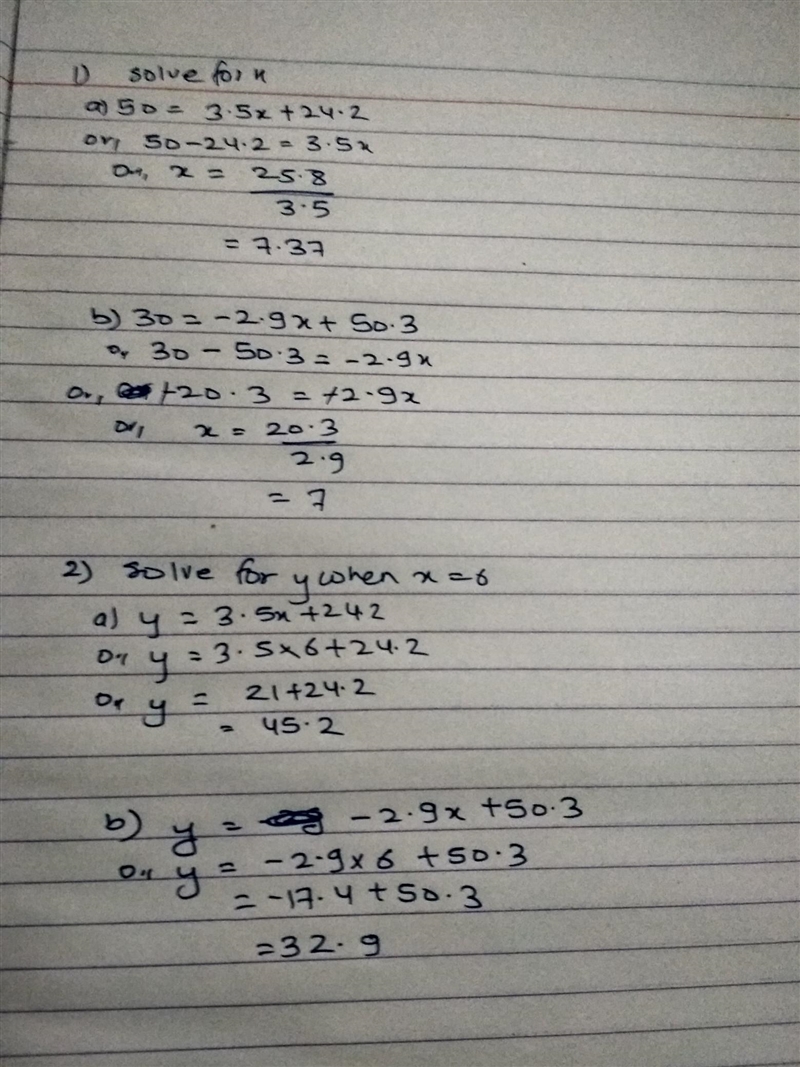 1) solve for x
a) 50 = 3.5x + 24.2
or, 50 - 24.2 = 3.5x
or, x = 25.8
3.5
= 7.37
b) 30 = -2.9x + 50.3
or 30 - 50.3 = -2.9x
or, +20.3 = +2.9x
or, x = 20.3
2.9
= 7
2) solve for y when x = 6
a) y = 3.5x + 242
or y = 3.5x6 + 24.2
or y = 21 + 24.2
= 45.2
b) y = -2.9x + 50.3
or y = -2.9x6 + 50.3
= -17.4 + 50.3
= 32.9